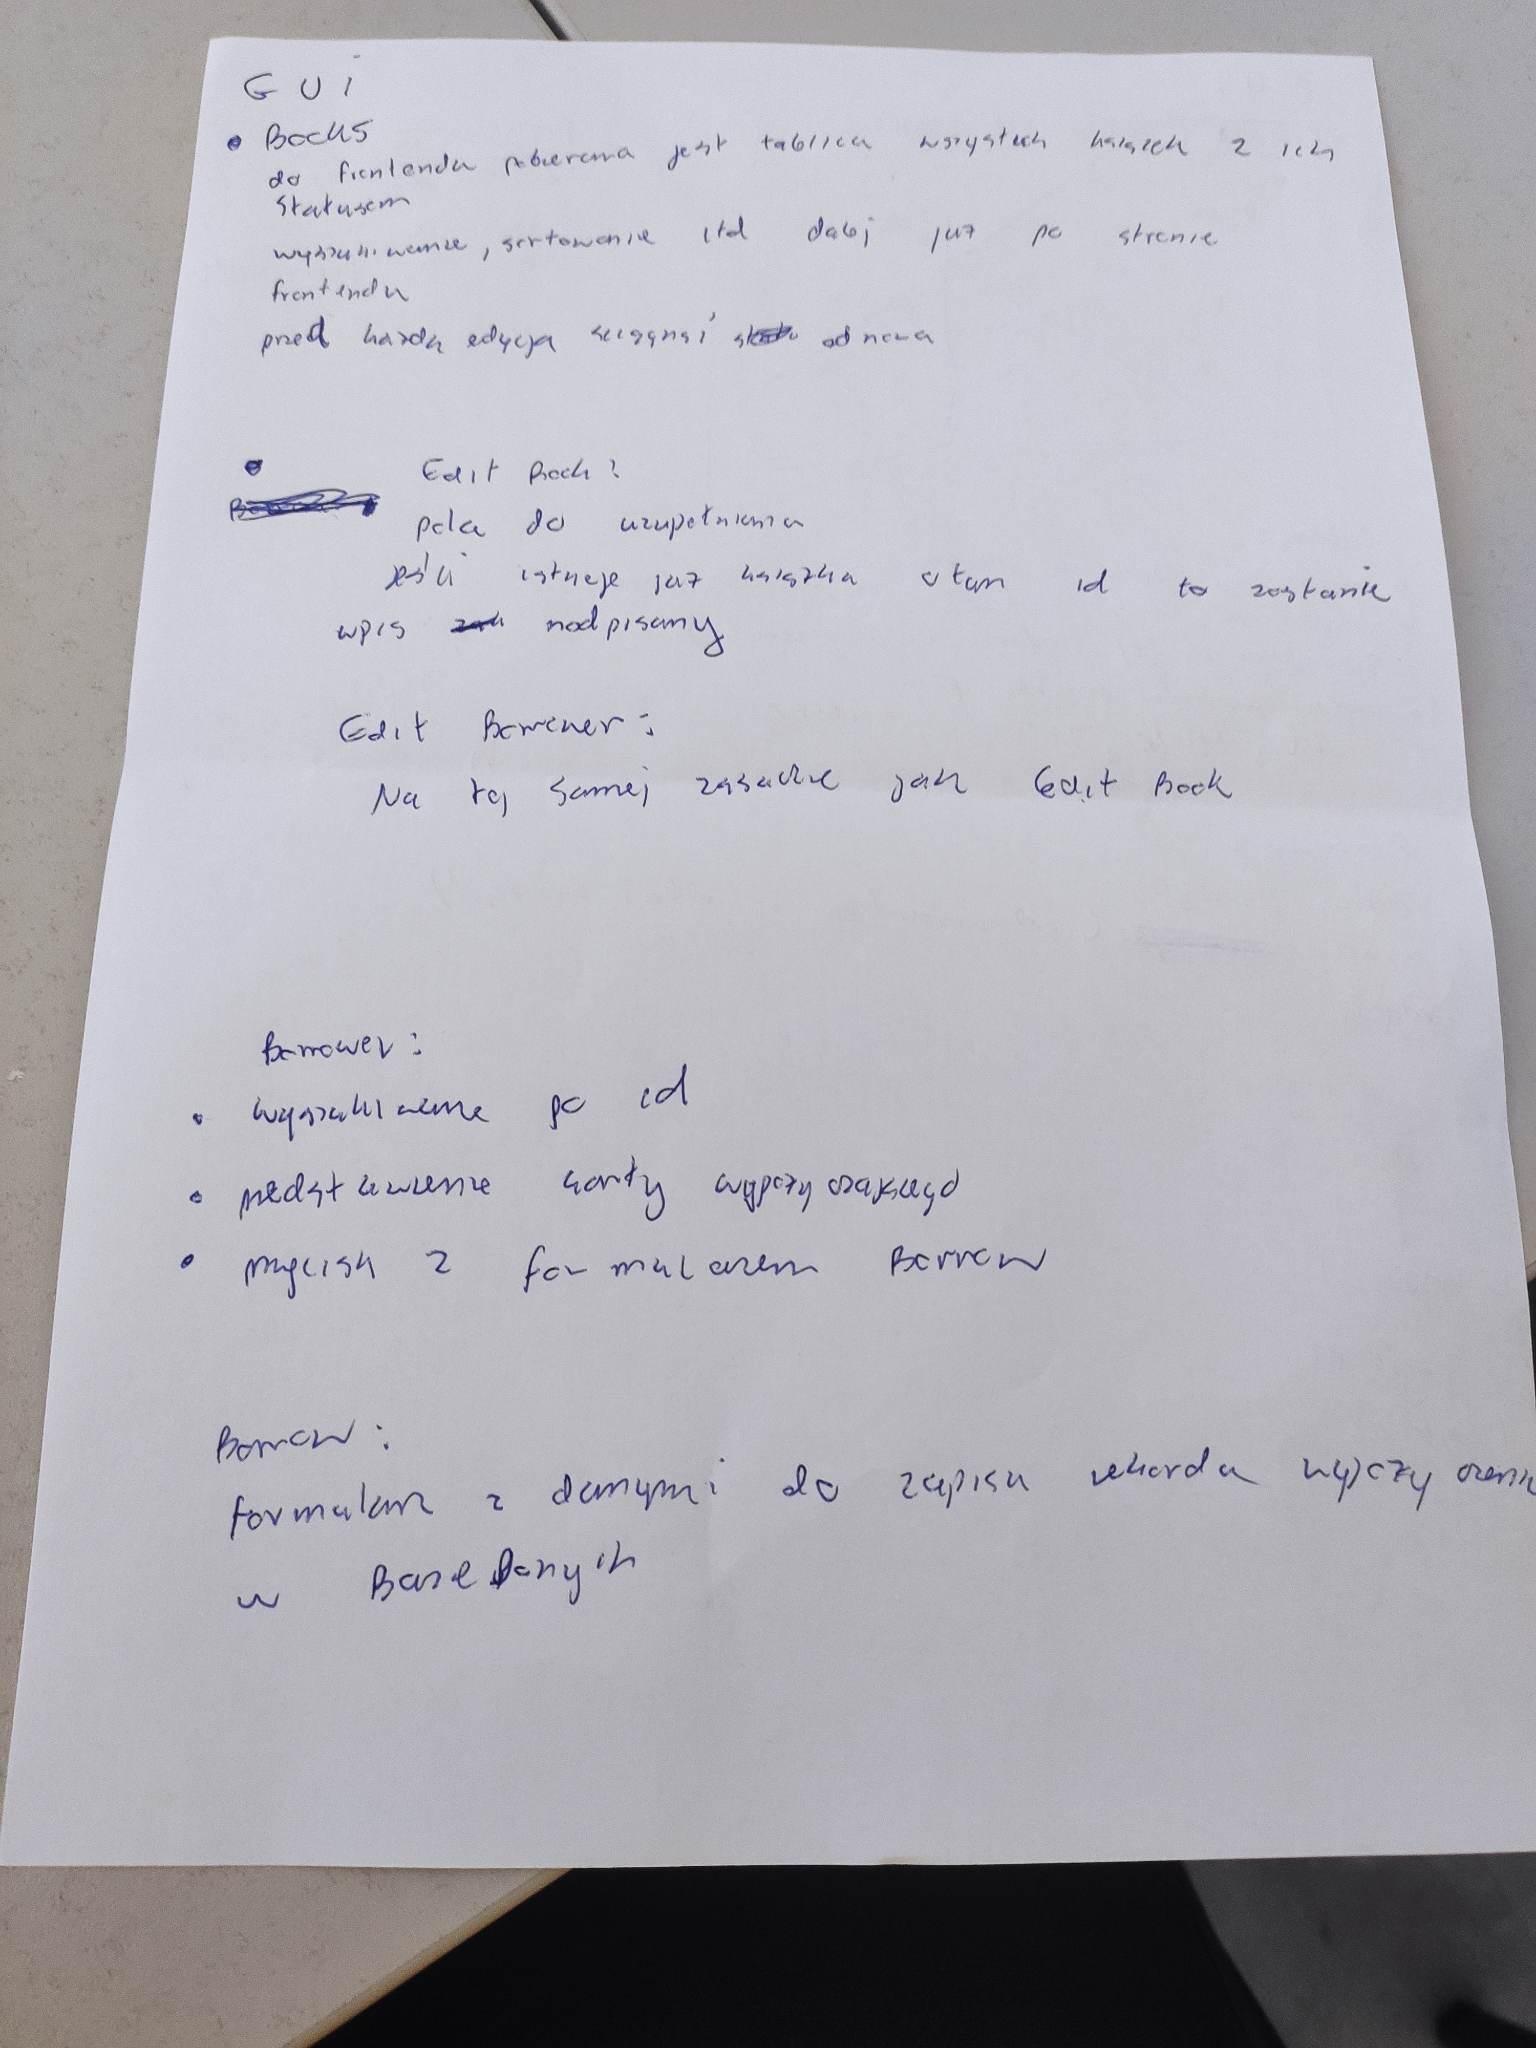 GUi
• Books
do frontendu pobierana jest tablica wszystkich książek z ich
statusem
wyszukiwanie, sortowanie itd dalej już po stronie
frontendu
przed każdą edycją ściągnąć od nowa
• Edit Book:
pola do uzupełnienia
jeśli istnieje już książka o tym id to zostanie
wpis nadpisany
Edit Borrower:
Na tej samej zasadzie jak Edit Book
Borrower:
• wyszukiwanie po id
• przedstawienie karty wypożyczającego
• przycisk z formularzem Borrow
Borrow:
formularz z danymi do zapisu rekordu
w Bazie Danych